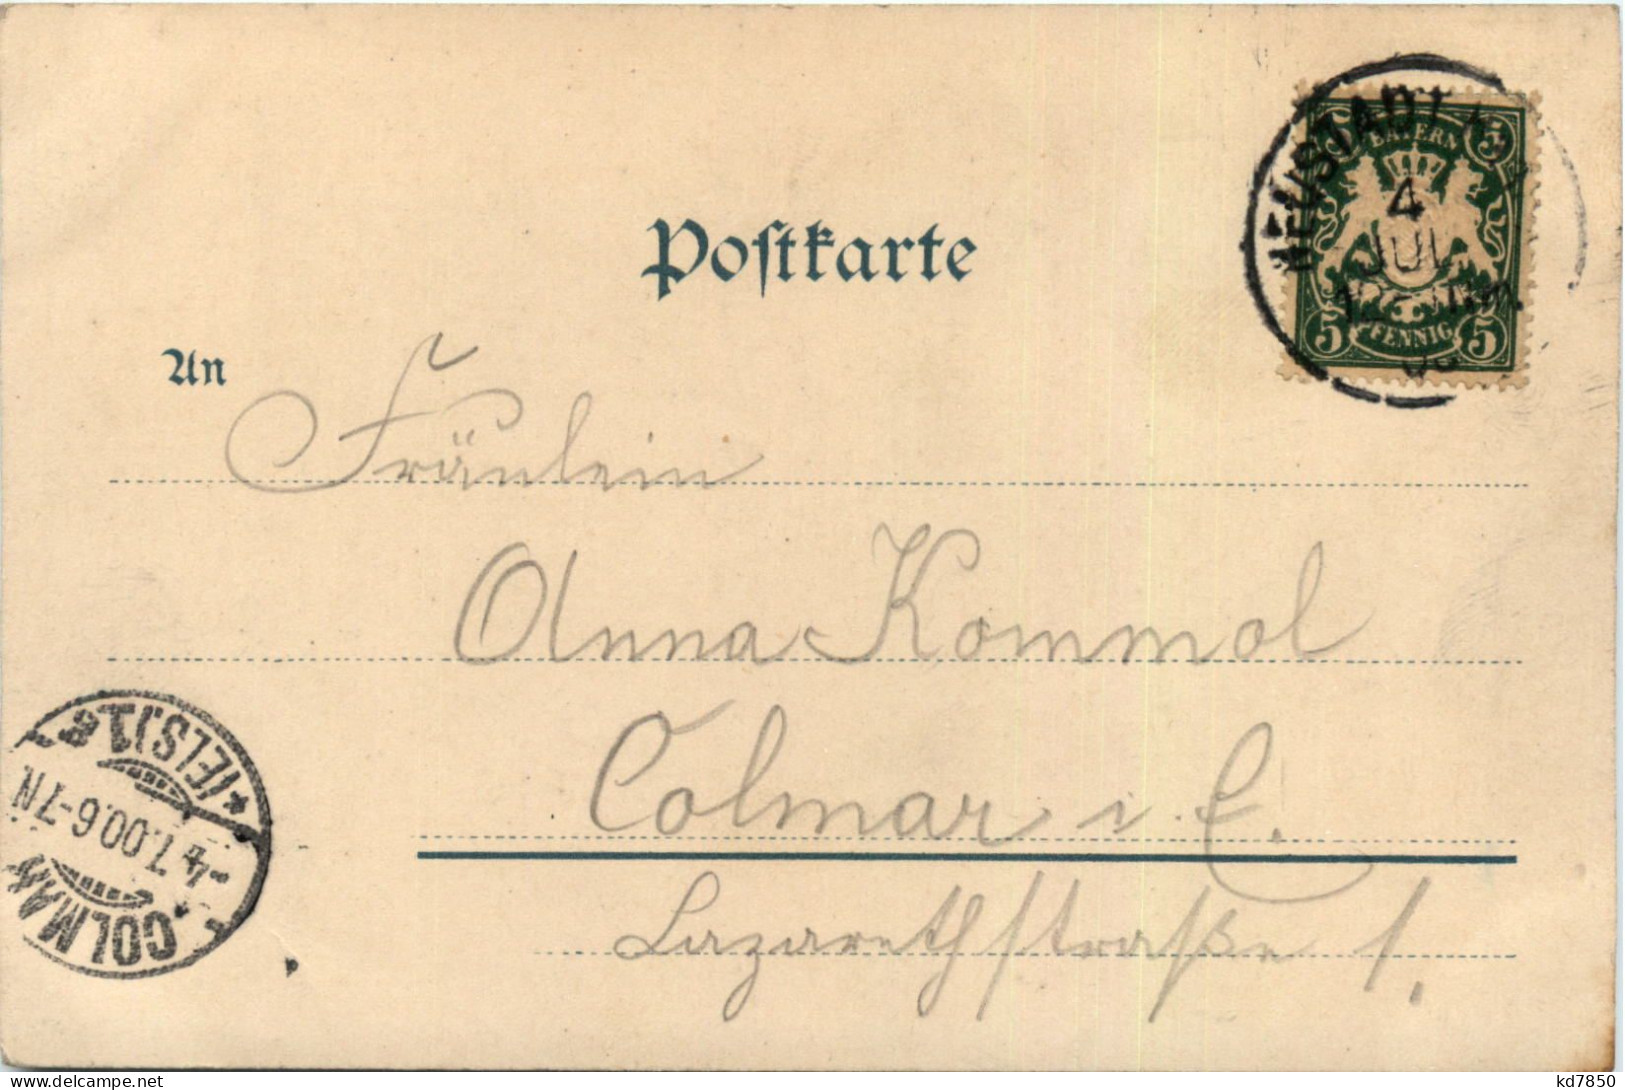 Postkarte
NEUSTADT
4
JUL
BAYERN
5 5
5 PFENNIG 5
An
Fräulein
Anna Kommol
Colmar i. E.
Lazarethstraße 1.
COLMAR
4.7.00.6-7N
*(ELS.)1 a
kd7850